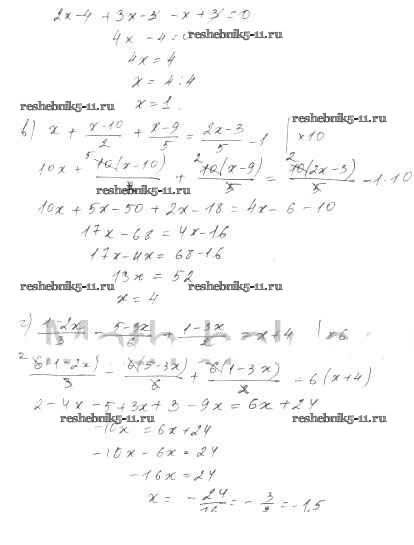 2x-4 + 3x-3 -x + 3=0
4x -4=0
reshebnik5-11.ru
4x = 4
x = 4:4
x = 1.
reshebnik5-11.ru
в) x + x-10/2 + x-9/5 = 2x-3/5 -1 | ×10
reshebnik5-11.ru
10x + 5 10(x-10)/2 + 2 10(x-9)/5 = 2 10(2x-3)/5 -1·10
reshebnik5-11.ru
10x + 5x-50 + 2x-18 = 4x-6-10
17x-68 = 4x-16
17x-4x = 68-16
reshebnik5-11.ru
13x = 52
reshebnik5-11.ru
x = 4
г) 1-2x/3 - 5-3x/6 + 1-3x/2 = x+4 | ×6
2 6(1-2x)/3 - 6(5-3x)/6 + 6(1-3x)/2 = 6(x+4)
2-4x-5+3x+3-9x = 6x+24
reshebnik5-11.ru
reshebnik5-11.ru
-10x = 6x+24
-10x-6x = 24
-16x = 24
x = -24/16 = -3/2 = -1,5